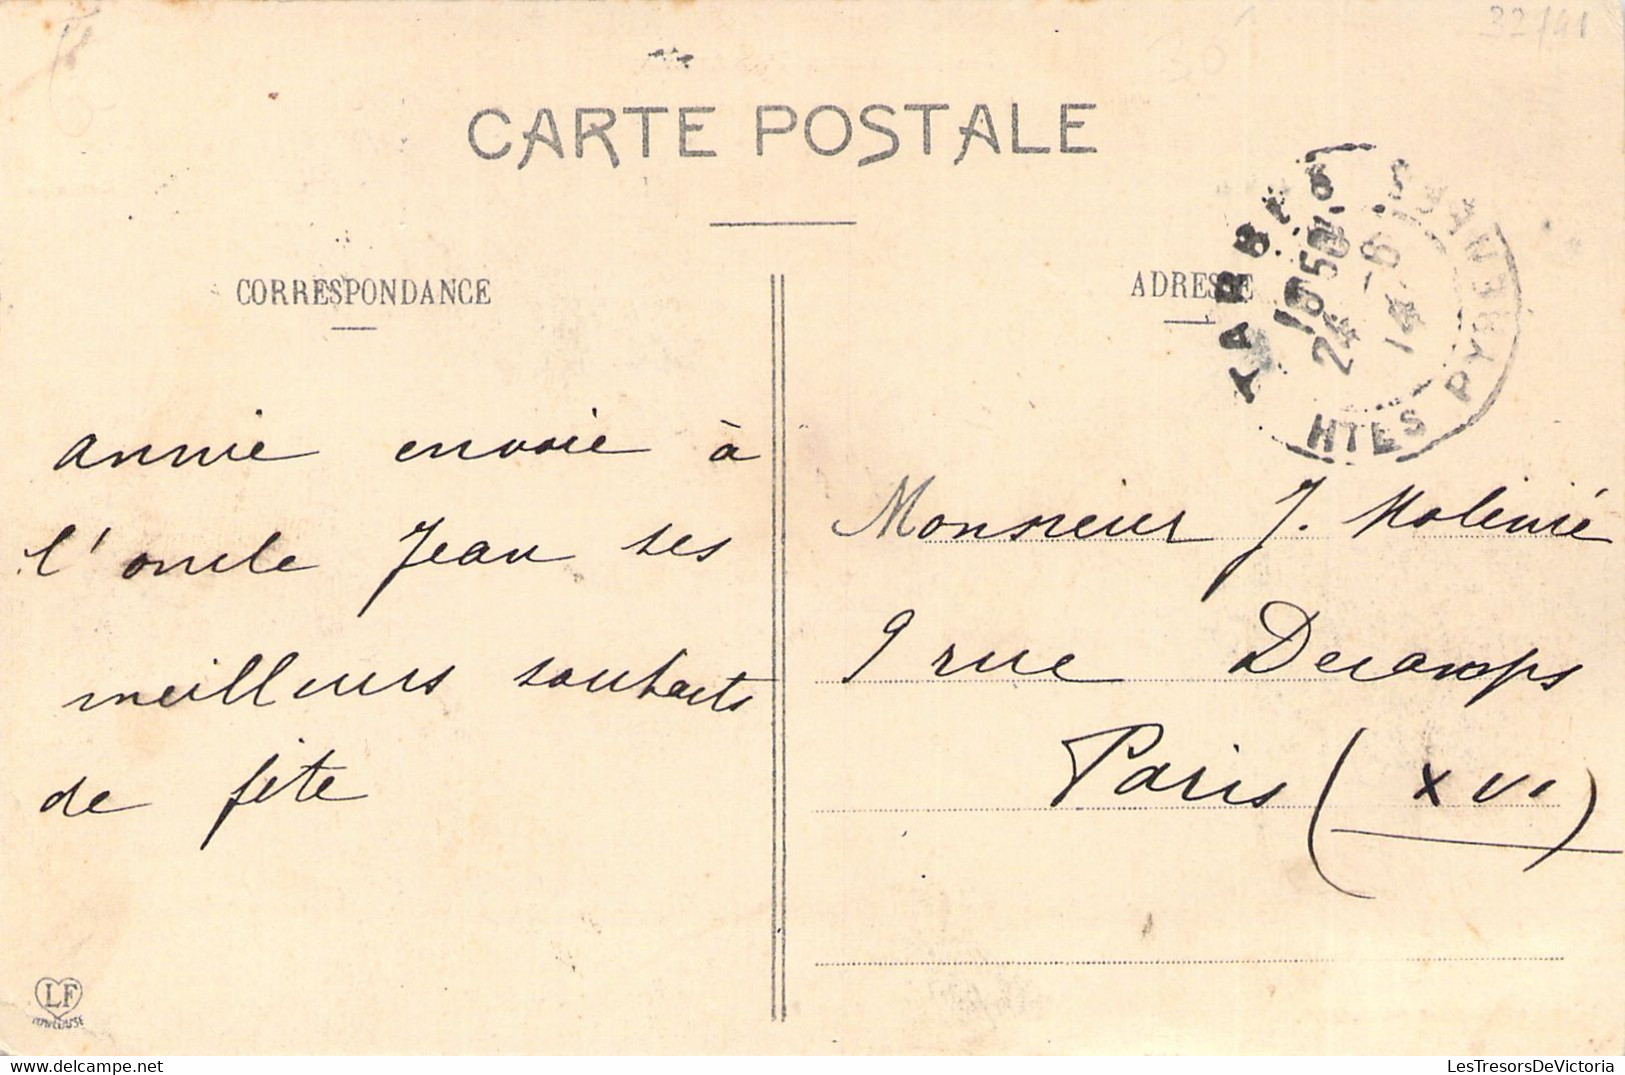 32/41
CARTE POSTALE
CORRESPONDANCE
ADRESSE
TARBES
HTES PYRENEES
18 50
24 - 6
14
annie envoie à
l'oncle Jean ses
meilleurs souhaits
de fête
Monsieur J. Molinié
9 rue Decamps
Paris (XVI)
LF
TOULOUSE
LesTresorsDeVictoria